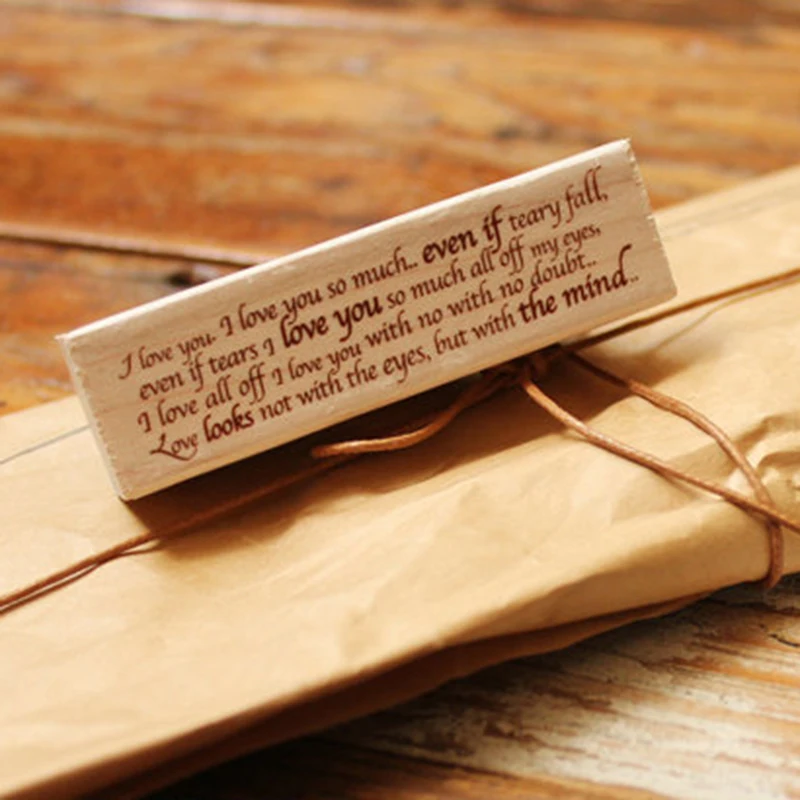 I love you. I love you so much.. even if teary fall,
even if tears I love you so much all off my eyes,
I love all off I love you with no with no doubt..
Love looks not with the eyes, but with the mind..